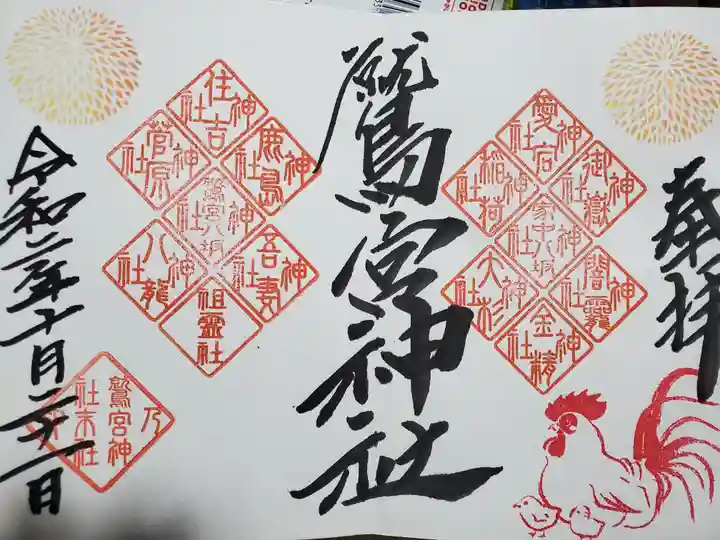 奉拝
愛宕神社
御嶽神社
稲荷神社
家中八坂神社
闇龗神社
大杉神社
金精神社
鷲宮神社
住吉神社
鹿島神社
菅原神社
鷲宮八坂神社
吾妻神社
八龍神社
祖霊社
令和二年十月二十一日
鷲宮神
社末社
乃